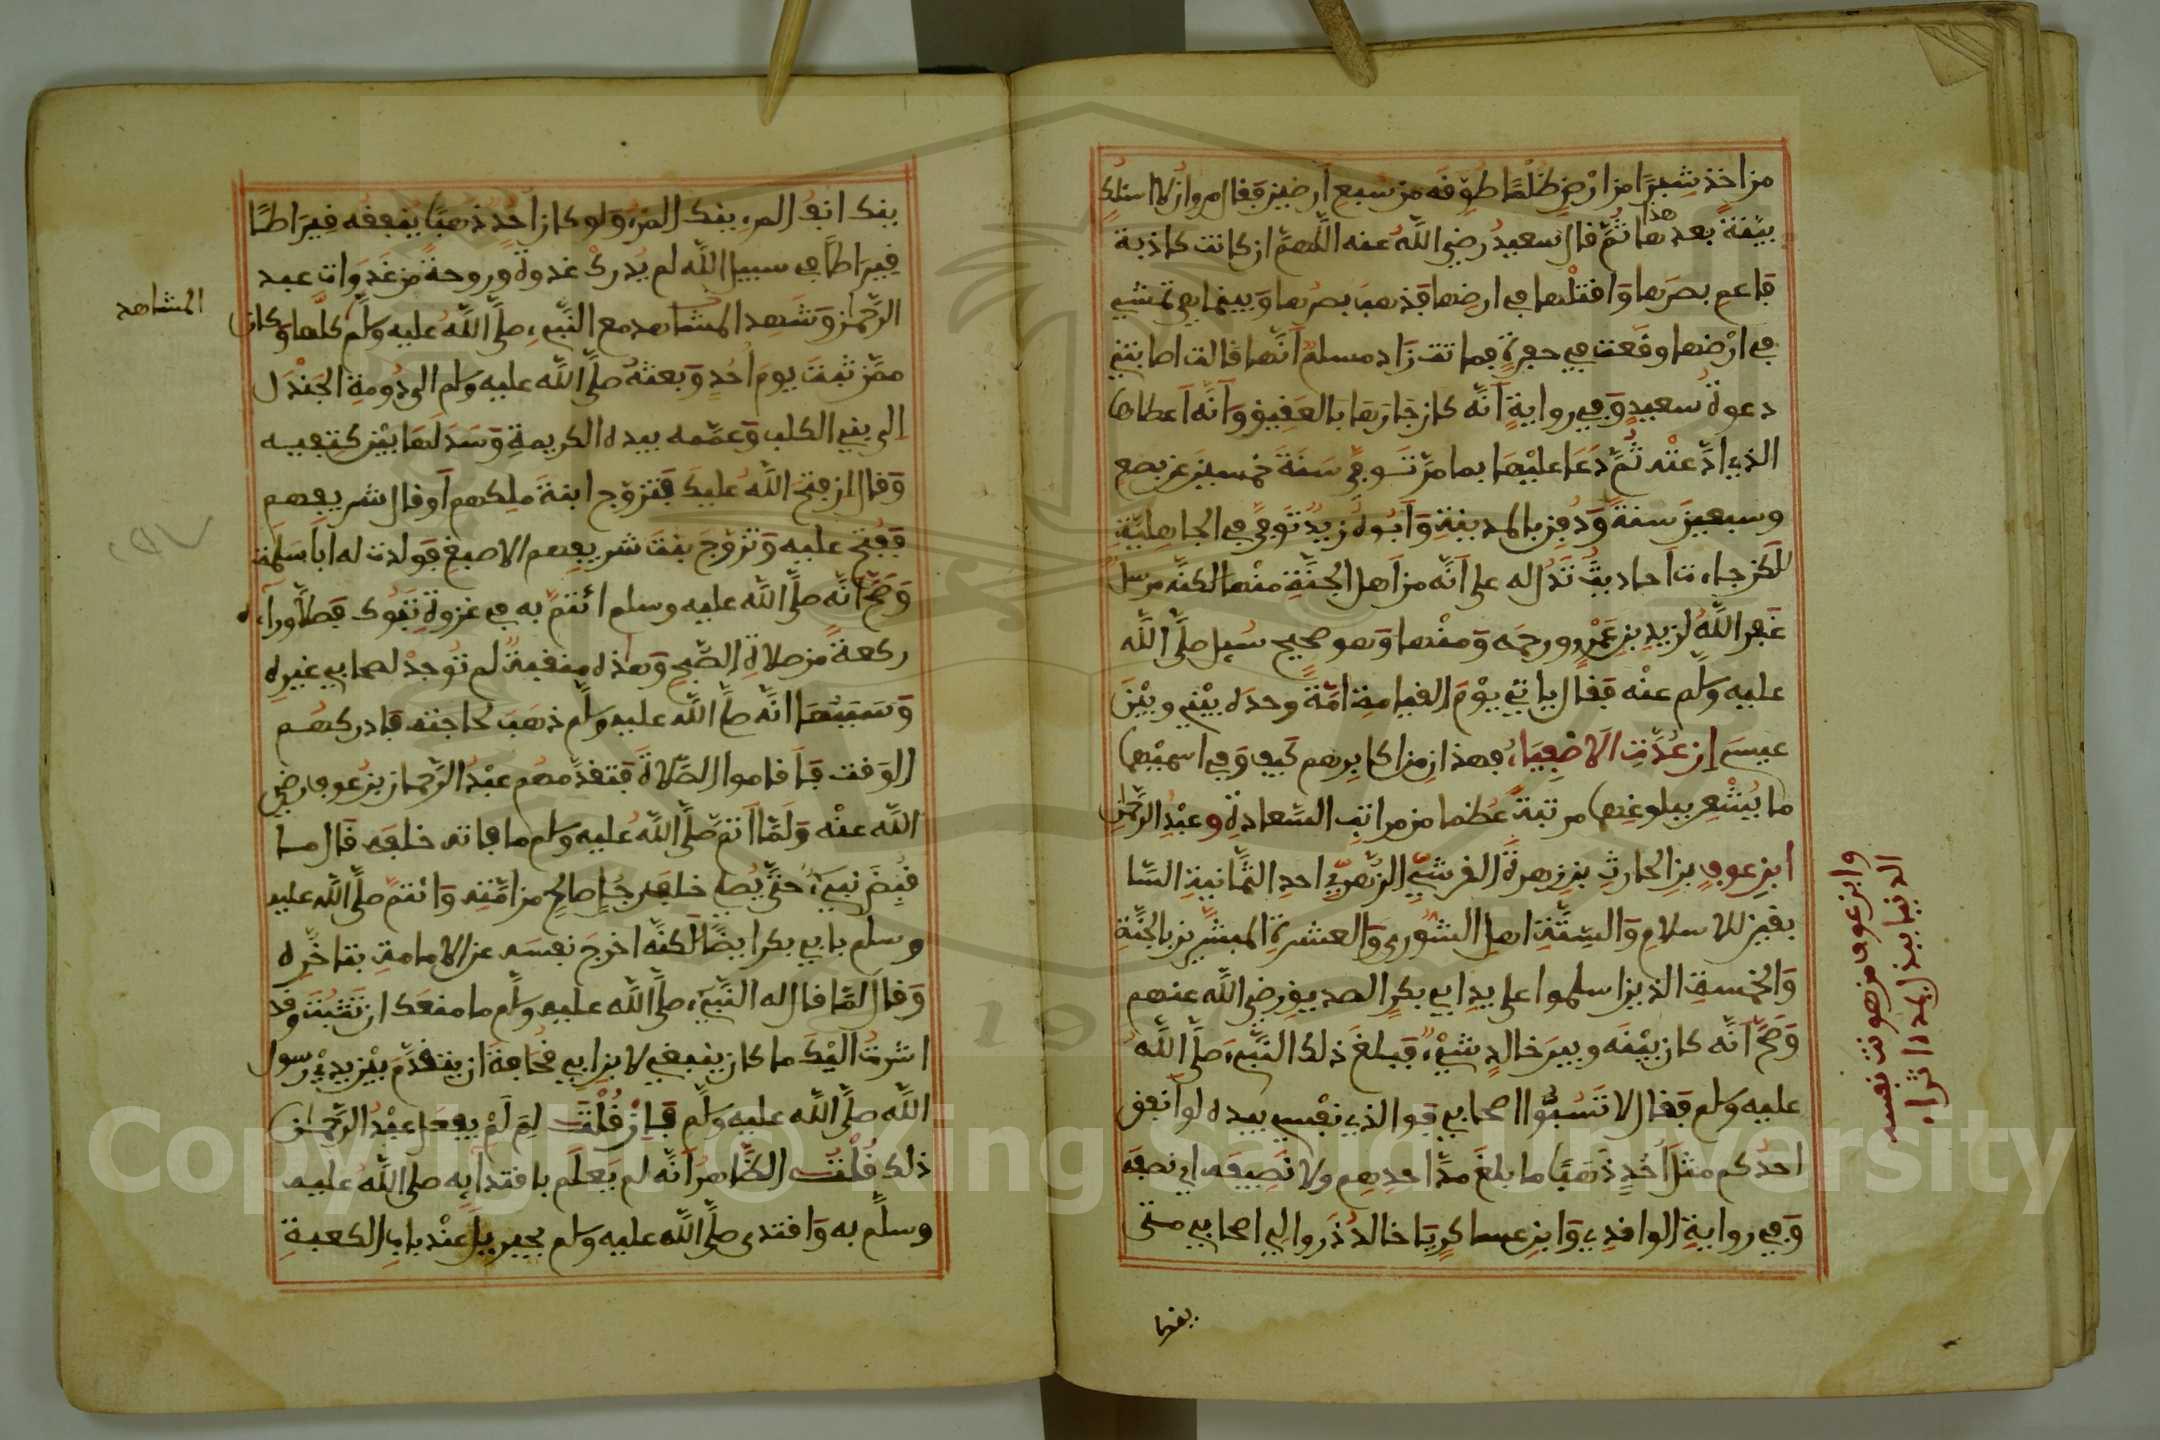 من اخذ شبرًا من ارض ظلمًا طوّقه من سبع أرضين فقال مروان لا اسئلك
بيّنةً بعد هذا ثمّ قال سعيد رضي اللّه عنه اللّهمّ ان كانت كاذبة
فاعم بصرها وَاقتلها في ارضها فذهب بصرها وَبينما هي تمشي
في ارضها وقعت في حفرة فماتت زاد مسلم أنّها قالت اصابتني
دعوة سعيد وَفي رواية أنّه كان جارها بالعقيق وَأنّه أعطاها
الذي ادّعته ثمّ دَعَا عليها بما مرّ توفي سنة خمسين عن بضع
وسبعين سنة وَدفن بالمدينة وَأبوه زيد توفي في الجاهليّة
لكن جاءت أحاديث تدُلّ له على أنّه من اهل الجنّة منها لكنّه مرسل
غفر اللّه لزيد بن عمرو ورحمه وَمنها وَهو صحيح سُيل صلّى اللّه
عليه وسلّم عنه فقال ياتي يوم القيامة امّةً وحده بيني وبين
عيسى إن عُدّت الأصفياء فهذان من اكابرهم كيف وَفي اسميهما
ما يُشعر ببلوغهما مرتبةً عُظما من مراتب السّعادة وعبد الرّحمان
ابن عوف بن الحارث بن زهرة القرشيّ الزّهريّ احد الثّمانية السّا
بقين للاسلام وَالستّة اهل الشورى وَالعشرة المبشّرين بالجنّة
وَالخمسة الذين اسلموا على يد ابي بكر الصديق رضي اللّه عنهم
وَصحّ أنّه كان بينه وبين خالد شيء فبلغ ذلك النّبيء صلّى اللّه
عليه وسلم فقال لا تسُبّوا اصحابي فو الذي نفسي بيده لو أنفق
احدكم مثل أُحُدٍ ذَهبًا ما بلغ مدّ احدهم ولا نَصِيفه اي نصفه
وَفي رواية الواقدي وَابن عساكر يَا خالد ذروا لي اصحابي متى
وابن عوف من هونت نفسه
الدنيا ببذل يمده اثراء
ينك انف المرء ينك المرءُ وَلو كان أُحُد ذهبًا ينفقه قيراطًا
قيراطًا في سبيل اللّه لم يُدرك غدوة وروحة من غَدَوَات عبد
الرّحمان وَشَهد المشاهد مع النّبيء صلّى اللّه عليه وسلّم كلّها وَكان
المشاهد
ممّن ثبت يوم أحُد وَبعثه صلّى اللّه عليه وسلم الى دُومة الجَندَل
إلى بني الكلب وَعمّمه بيده الكريمة وَسَدَلها بين كتفيه
وَقال ان فتح اللّه عليك فتزوّج ابنة ملكهم أو قال شريفهم
ففُتح عليه وَتزوّج بنت شريفهم الاصبغ فولدت له أبا سَلمة
وَصَحّ أنّه صلّى اللّه عليه وسلم ائتمّ به في غزوة تبوك فصلّى وراءه
ركعة من صلاة الصّبح وَهذه منقبة لم تُوجد لصحابي غيره
وَسببها انّه صلّى اللّه عليه وسلّم ذهب لحاجته فادركهم
الوقت فأقاموا الصّلاة فتقدّمهم عبد الرّحمان بن عوف رضي
اللّه عنه وَلمّا اتمّ صلّى اللّه عليه وسلم ما فاته خلفه قال ما
قُبِضَ نبيء حتّى يُصلي خلف رجُل صالح من امّته وَائتمّ صلّى اللّه عليه
وسلم بابي بكر ايضًا لكنّه اخرج نفسه عن الامامة بتاخّره
وَقال لمّا قال له النّبيء صلّى اللّه عليه وسلّم ما منعك ان تثبت وقد
اشرت اليك ما كان ينبغي لابن ابي قحافة ان يتقدّم بين يدي رسول
اللّه صلّى اللّه عليه وسلّم فإن قلت لِمَ لَمْ يفعل عبد الرّحمان
ذلك قُلتُ الظّاهر أنّه لم يَعلم باقتدايه صلى اللّه عليه
وسلّم به وَاقتدى صلّى اللّه عليه وسلم بجبريل عند باب الكعبة
ينفقها
Copyright © King Saud University